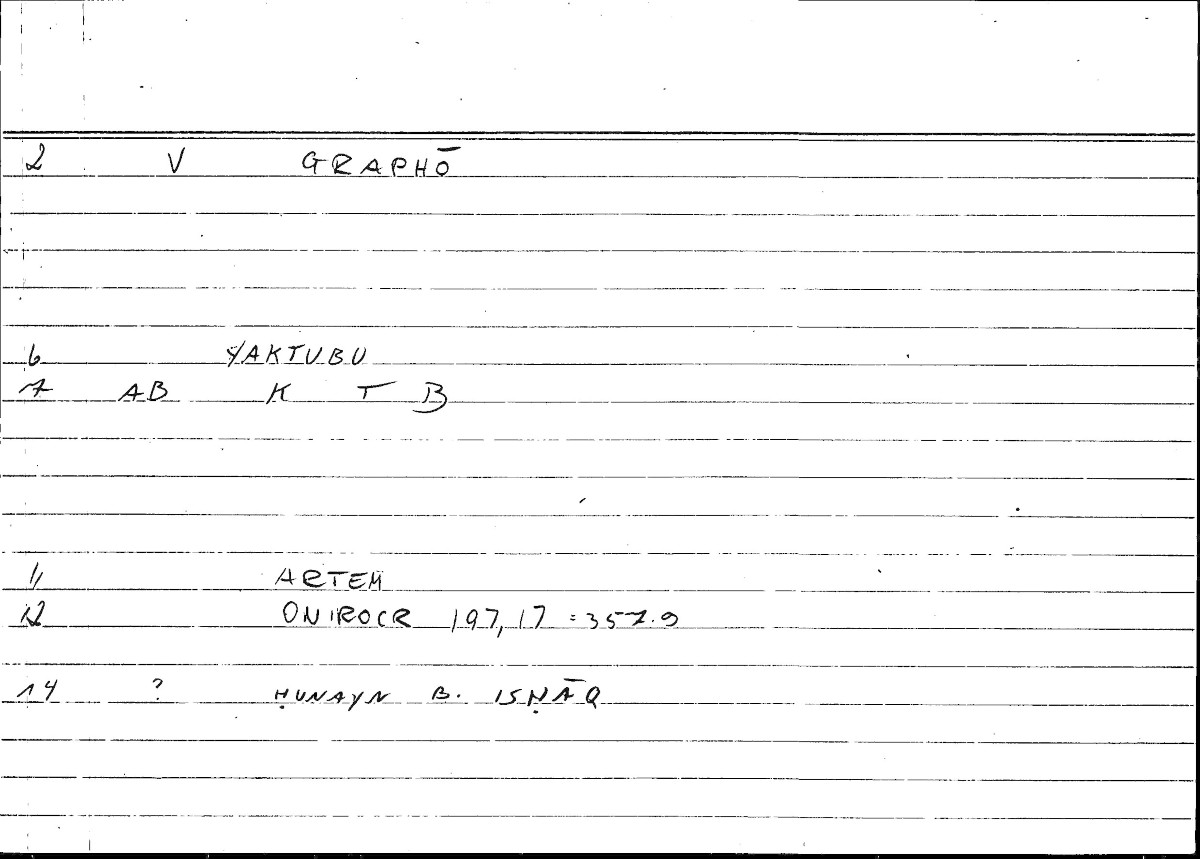 2 V GRAPHŌ
6 YAKTUBU
7 AB K T B
11 ARTEM
12 ONIROCR 197,17 = 357.9
14 ? ḤUNAYN B. ISḤĀQ